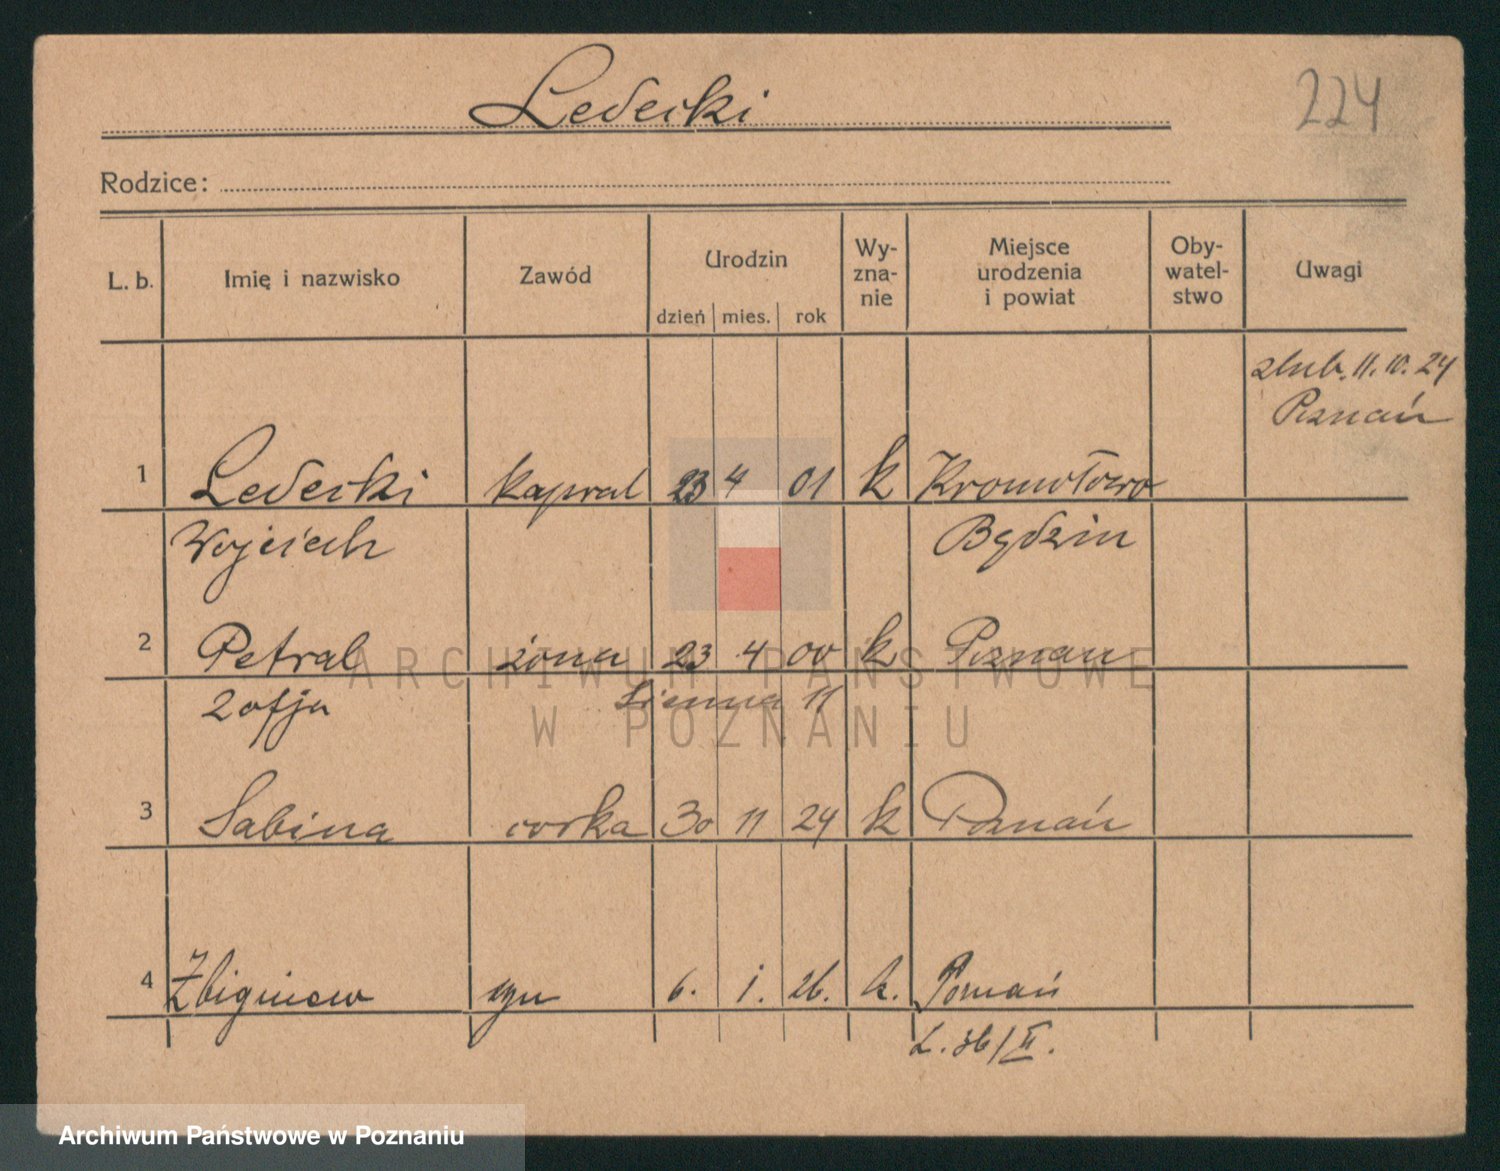 Ledecki
224
Rodzice:
L. b. Imię i nazwisko Zawód Urodzin dzień mies. rok Wy-zna-nie Miejsce urodzenia i powiat Oby-watel-stwo Uwagi
ślub. 11. 10. 24
Poznań
1 Ledecki kapral 23 4 01 k Kromołowo
Wojciech Będzin
2 Petral żona 23 4 00 k Poznań
Zofja Sienna 11
3 Sabina corka 30 11 24 k Poznań
4 Zbigniew syn 6. 1. 26. k. Poznań
L. 36/II.
ARCHIWUM PAŃSTWOWE
W POZNANIU
Archiwum Państwowe w Poznaniu